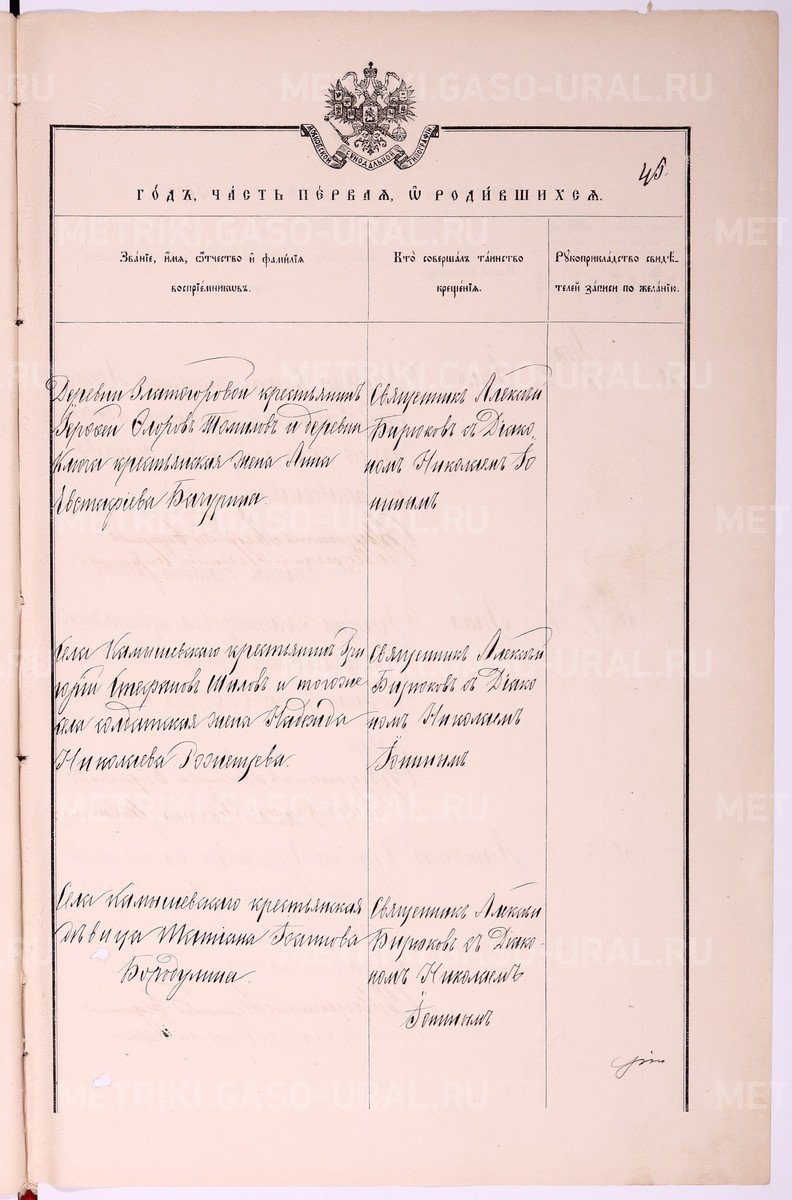 МОСКОВСКОЙ СѴНОДАЛЬНОЙ ТИПОГРАФІИ
45
ГО́ДЪ, ЧА́СТЬ ПЕ́РВАЯ, Ѽ РОДИ́ВШИХСЯ.
Зва́ніе, и́мя, ѻ́тчество и҆ фами́лія
воспрїе́мниковъ.
Кто̀ соверша́лъ та́инство
креще́нія.
Рукоприкла́дство свидѣ́-
телей за́писи по жела́нію.
Деревни Златогоровой крестьянинъ
Ѳлоровъ Томиловъ и деревни
Ключа крестьянская жена Анна
Евстафіева Бачурина.
Священникъ Алексѣй
Бирюковъ съ Діако
номъ Николаемъ
Села Камышевскаго крестьянинъ Гри
горій Стефановъ Шиловъ и тогоже
села солдатская жена Надежда
Николаева
Священникъ Алексѣй
Бирюковъ съ Діако
номъ Николаемъ
Села Камышевскаго крестьянская
дѣвица Татіана
Бородулина.
Священникъ Алексѣй
Бирюковъ съ Діако-
номъ Николаемъ
METRIKI.GASO-URAL.RU